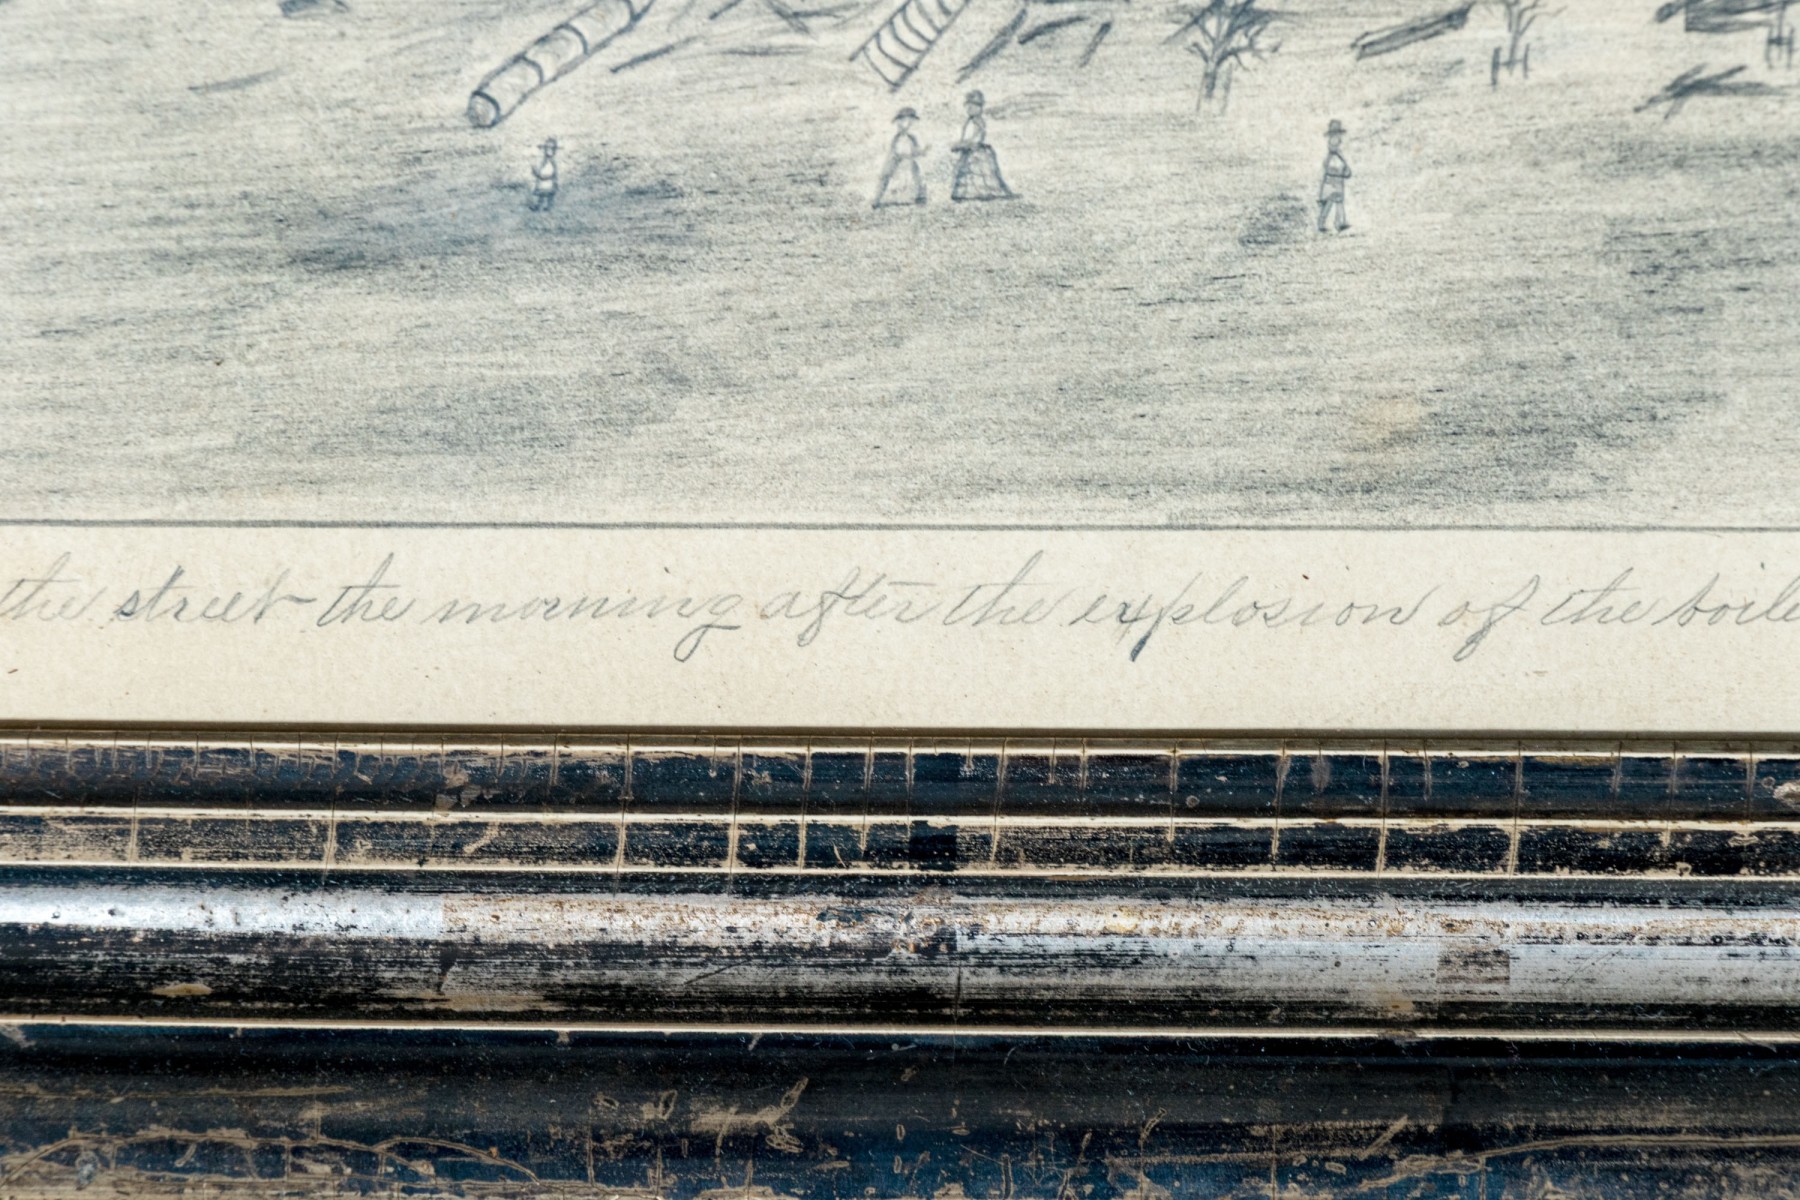 the street the morning after the explosion of the boile